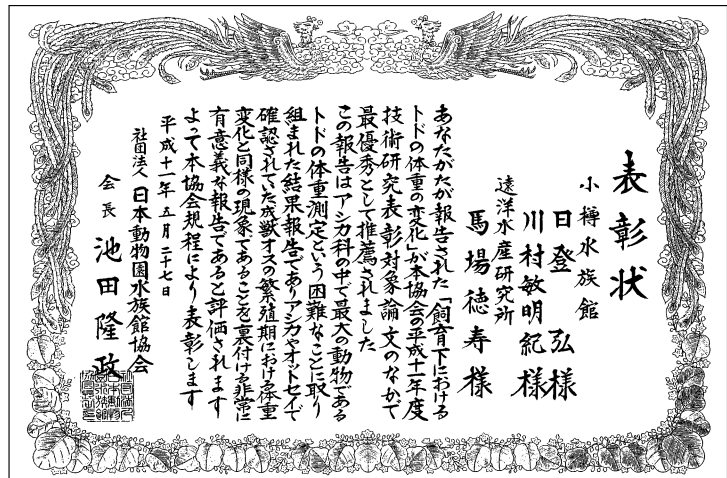 表彰状
小樽水族館
日登 弘様
川村敏明紀様
遠洋水産研究所
馬場徳寿様
あなたがたが報告された「飼育下における
トドの体重の変化」が本協会の平成十一年度
技術研究表彰対象論文のなかで
最優秀として推薦されました
この報告はアシカ科の中で最大の動物である
トドの体重測定という困難なことに取り
組まれた結果報告でありアシカやオットセイで
確認されていた成獣オスの繁殖期における体重
変化と同様の現象であることを裏付ける非常に
有意義な報告であると評価されます
よって本協会規程により表彰します
平成十一年五月二十七日
社団法人 日本動物園水族館協会
会長 池田隆政